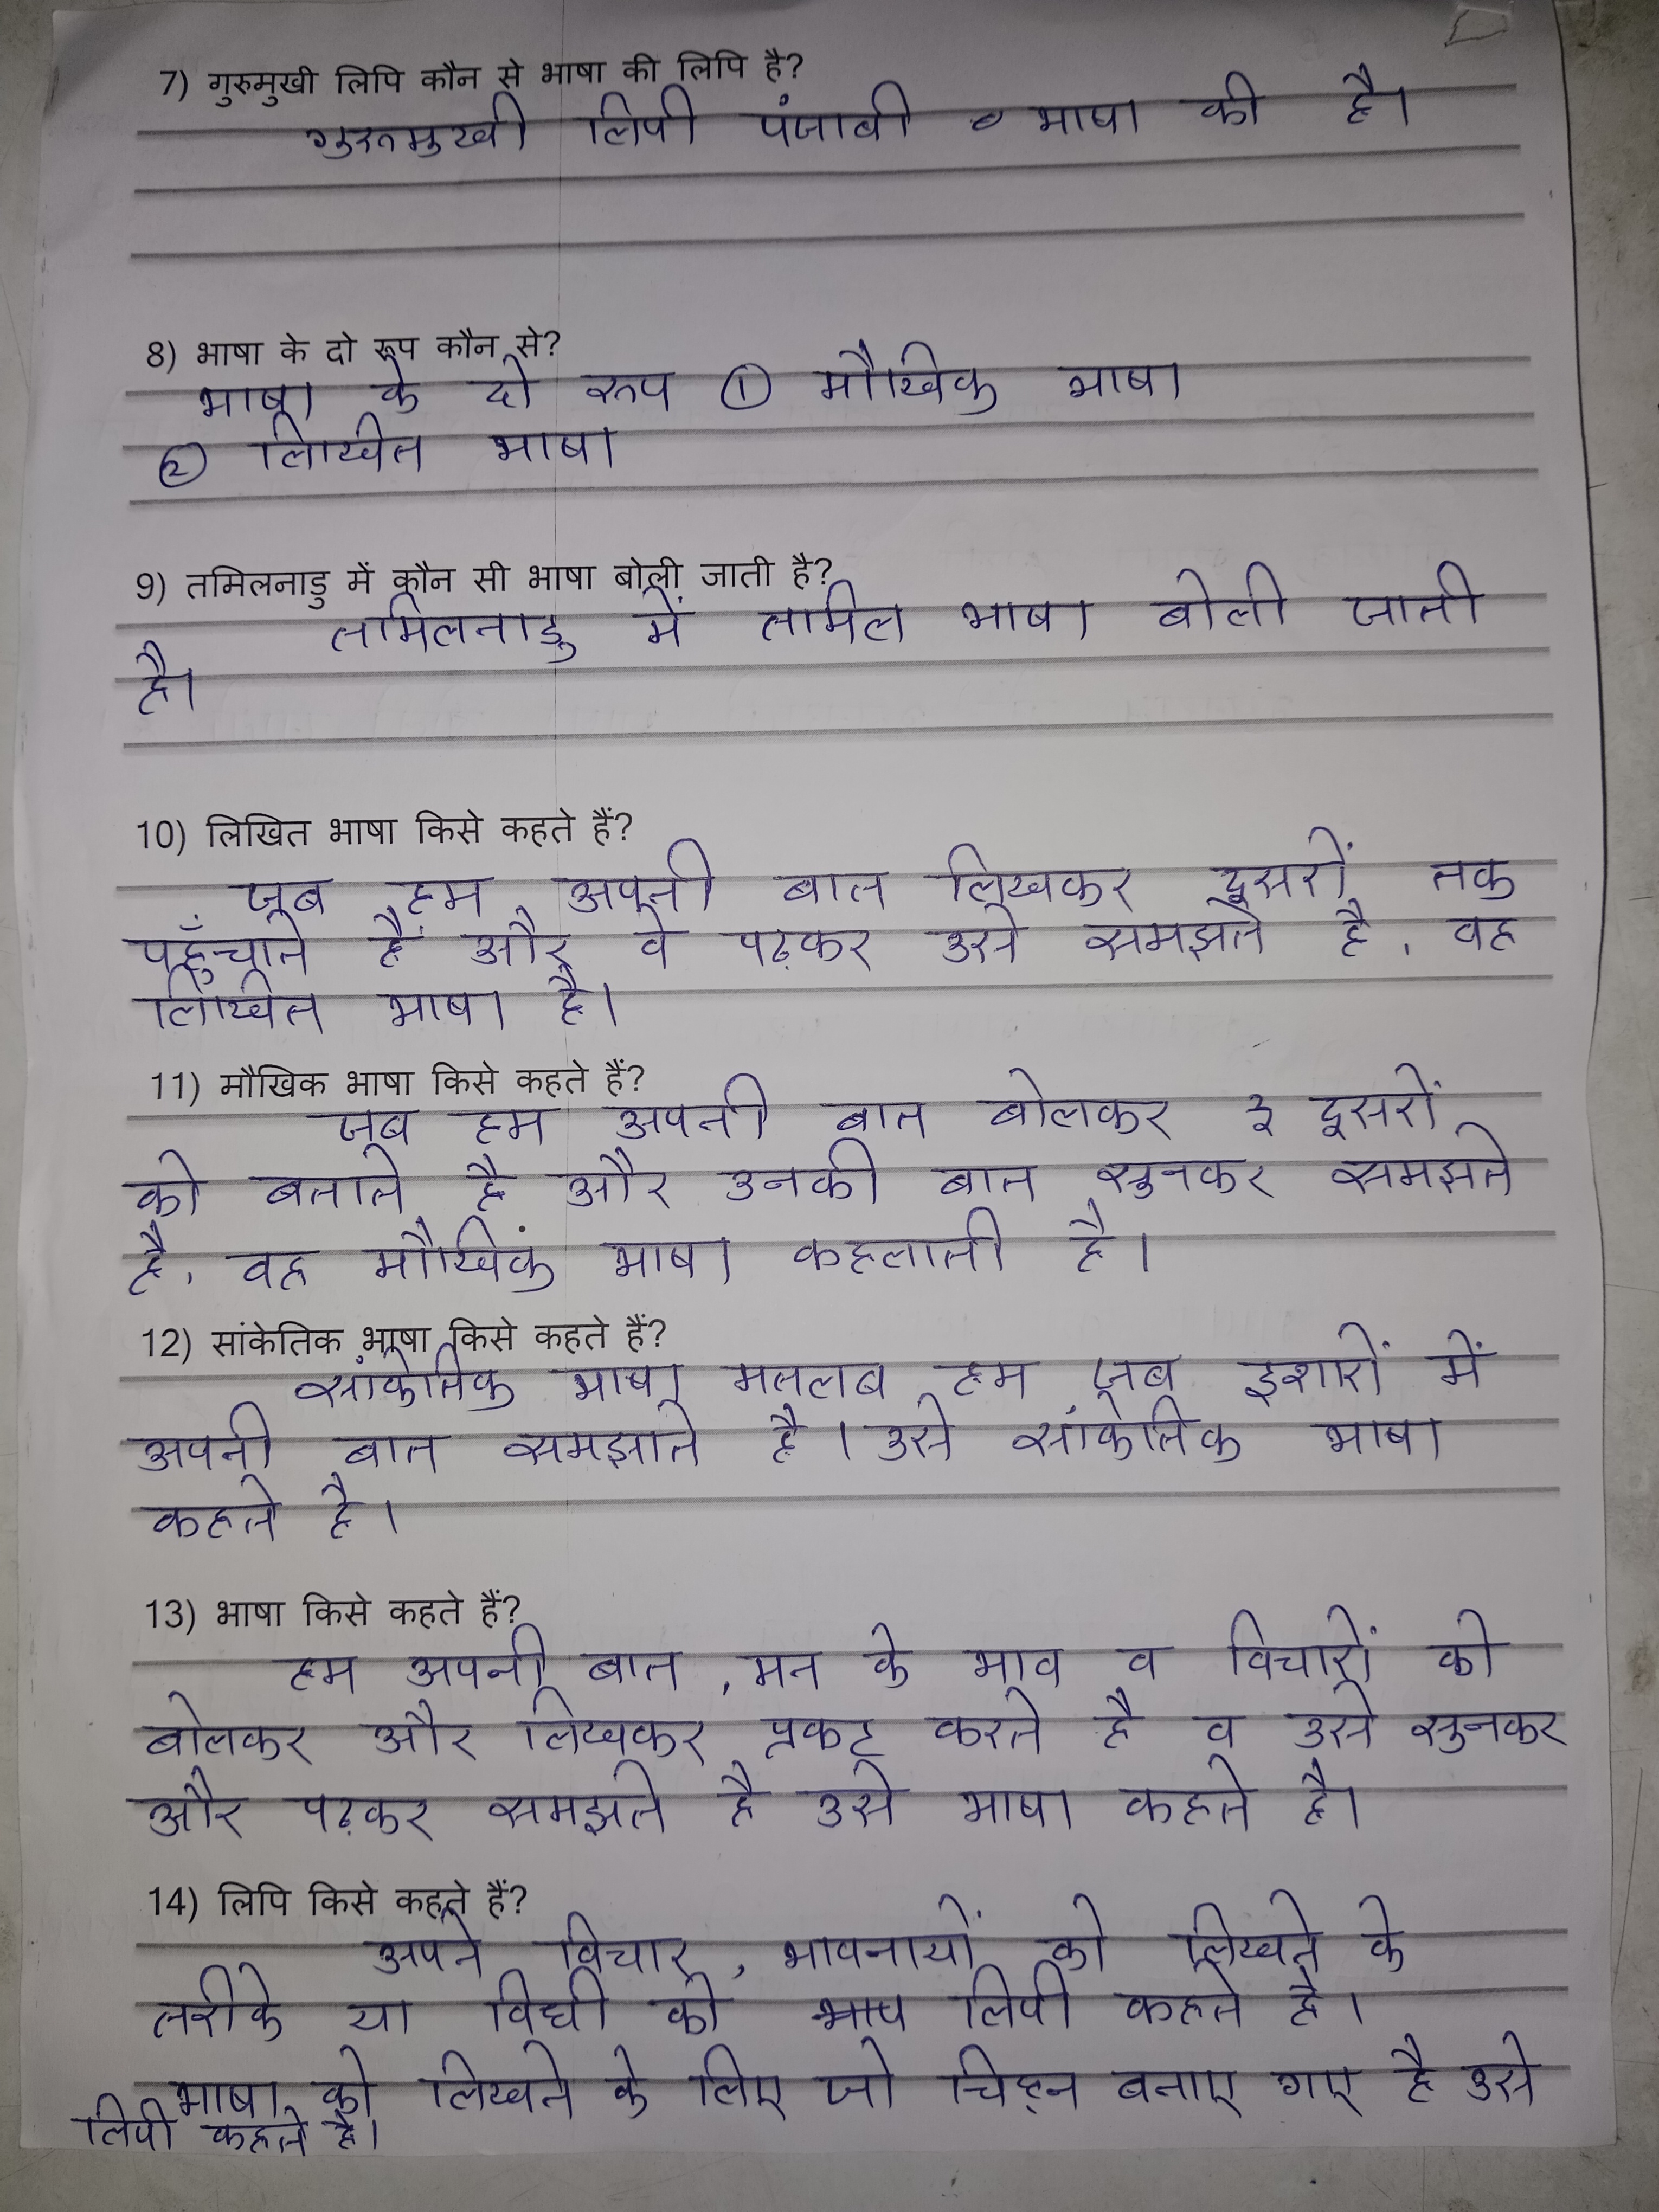 7) गुरुमुखी लिपि कौन से भाषा की लिपि है?
गुरुमुखी लिपी पंजाबी भाषा की है।
8) भाषा के दो रूप कौन से?
भाषा के दो रुप ① मौखिक भाषा
② लिखित भाषा
9) तमिलनाडु में कौन सी भाषा बोली जाती है?
तमिलनाडु में तामिल भाषा बोली जाती
है।
10) लिखित भाषा किसे कहते हैं?
जब हम अपनी बात लिखकर दूसरों तक
पहुँचाते हैं और वे पढ़कर उसे समझते है, वह
लिखित भाषा है।
11) मौखिक भाषा किसे कहते हैं?
जब हम अपनी बात बोलकर दूसरों
को बताते है और उनकी बात सुनकर समझते
है, वह मौखिकं भाषा कहलाती है।
12) सांकेतिक भाषा किसे कहते हैं?
सांकेतिक भाषा मतलब हम जब इशारों में
अपनी बात समझाते है। उसे सांकेतिक भाषा
कहते है।
13) भाषा किसे कहते हैं?
हम अपनी बात, मन के भाव व विचारों को
बोलकर और लिखकर प्रकट करते है व उसे सुनकर
और पढ़कर समझते है उसे भाषा कहते है।
14) लिपि किसे कहते हैं?
अपने विचार, भावनायों को लिखने के
तरीके या विधी को लिपी कहते है।
भाषा को लिखने के लिए जो चिह्न बनाए गए है उसे
लिपी कहते है।